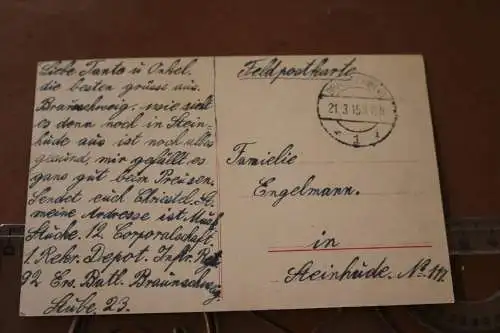 Liebe Tante u Onkel.
die besten grüsse aus
Braunschweig. wie sieht
es denn noch in Stein-
hüde aus ist noch alles
gesund, mir gefällt es
ganz gut beim Preusen.
Sendet euch
meine Adresse ist Musk
Stücke. 12. Corporalschaft.
1. Rekr. Depot. Inftr. Regt
92 Ers. Batl. Braunschweig
Stube. 23.
Feldpostkarte
21.3.15
Familie
Engelmann.
in
Steinhüde. No. 117.